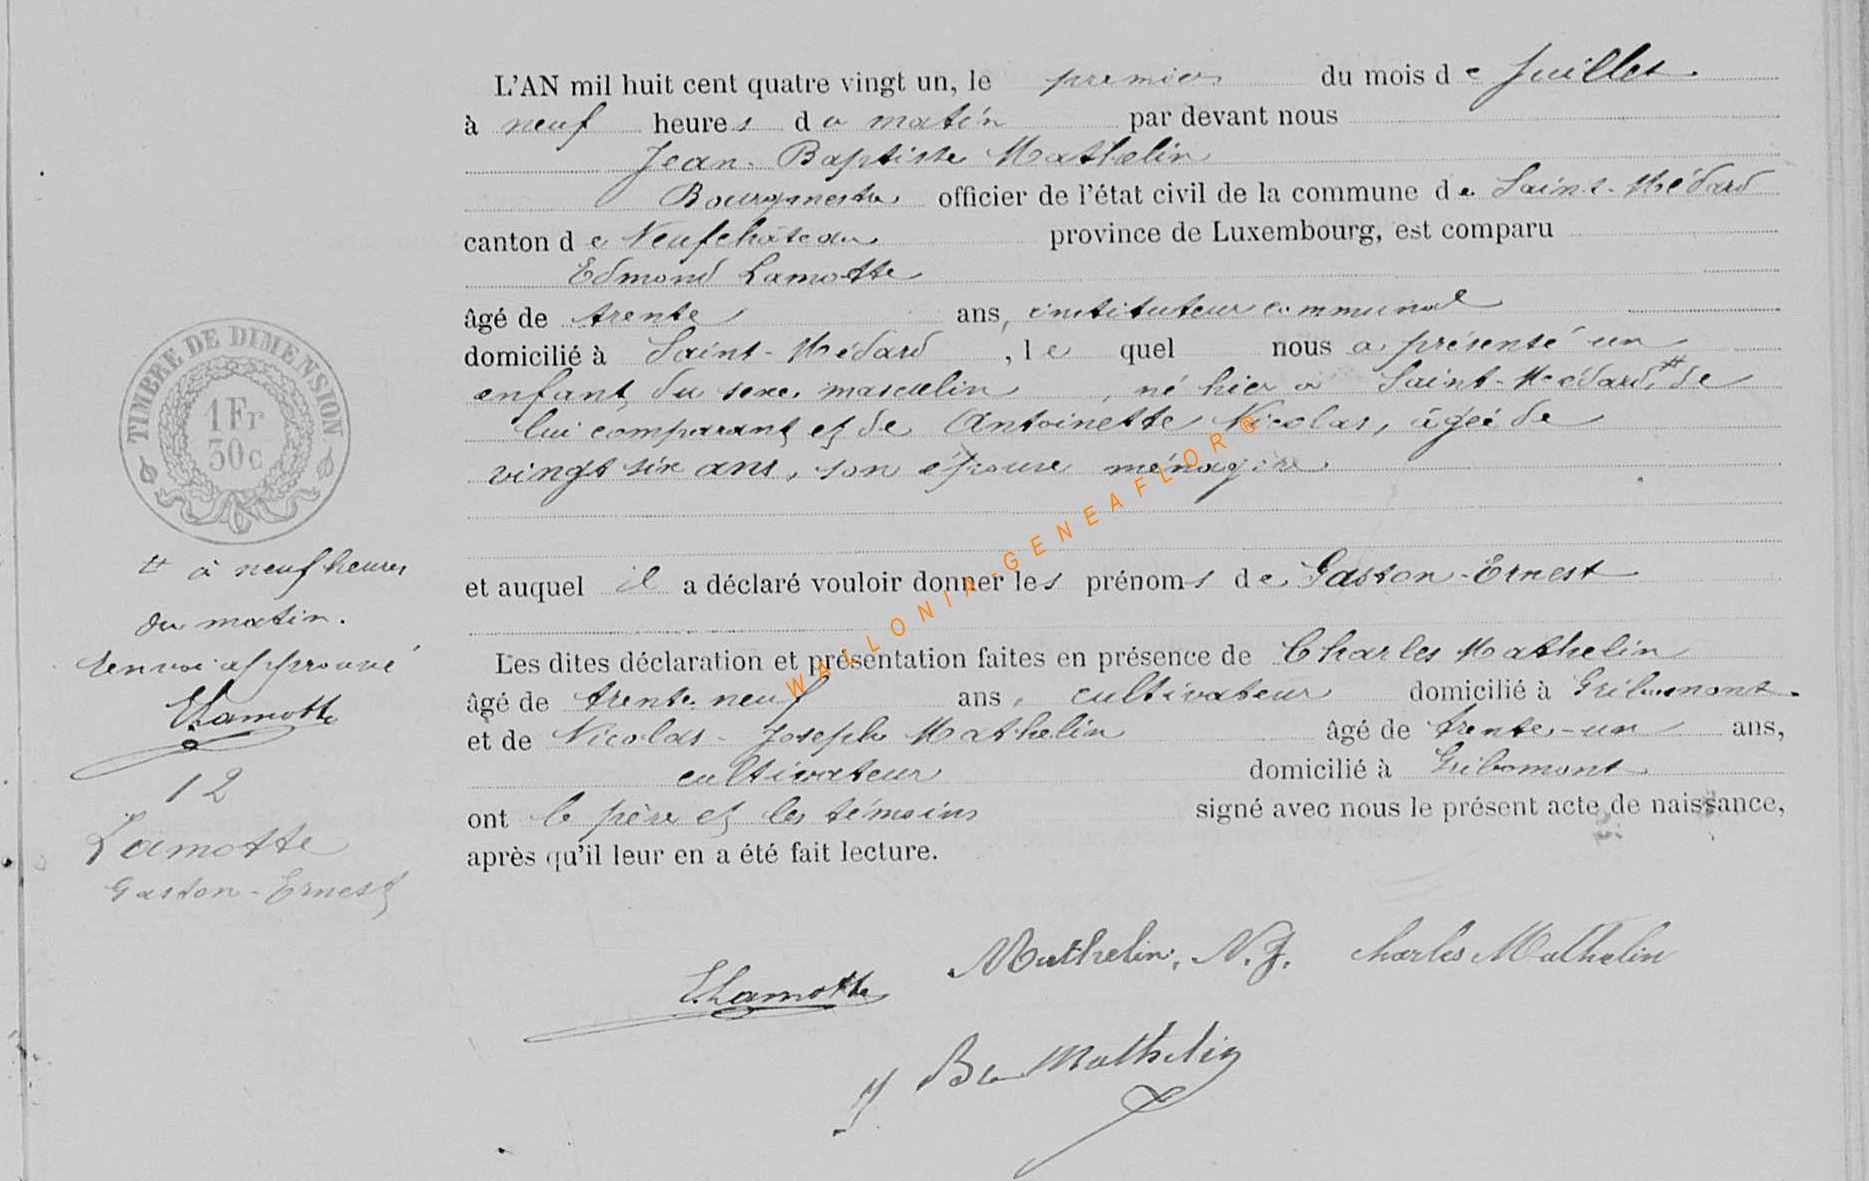 L'AN mil huit cent quatre vingt un, le premier du mois de Juillet
à neuf heures du matin par devant nous
Jean-Baptiste Mathelin
Bourgmestre officier de l'état civil de la commune de Saint-Médard
canton de Neufchâteau province de Luxembourg, est comparu
Edmond Lamotte
âgé de trente ans, instituteur communal
domicilié à Saint-Médard, lequel nous a présenté un
enfant du sexe masculin, né hier à Saint-Médard, # de
lui comparant et de Antoinette Nicolas, âgée de
vingt six ans, son épouse ménagère
et auquel il a déclaré vouloir donner les prénoms de Gaston-Ernest
Les dites déclaration et présentation faites en présence de Charles Mathelin
âgé de trente neuf ans, cultivateur domicilié à Gribomont.
et de Nicolas-Joseph Mathelin âgé de trente-un ans,
cultivateur domicilié à Gribomont
ont le père et les témoins signé avec nous le présent acte de naissance,
après qu'il leur en a été fait lecture.
TIMBRE DE DIMENSION
1 Fr
30 c
# à neuf heures
du matin.
Renvoi approuvé
E. Lamotte
12
Lamotte
Gaston-Ernest
E. Lamotte Mathelin, N. J. Charles Mathelin
J Bte Mathelin
WALLONIA-GENEAFLOR®